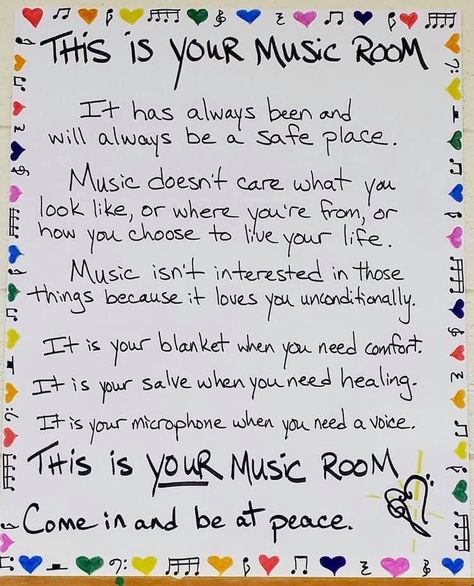 THIS IS YOUR MUSIC ROOM
It has always been and
will always be a safe place.
Music doesn't care what you
look like, or where you're from, or
how you choose to live your life.
Music isn't interested in those
things because it loves you unconditionally.
It is your blanket when you need comfort.
It is your salve when you need healing.
It is your microphone when you need a voice.
THIS IS YOUR MUSIC ROOM
Come in and be at peace.